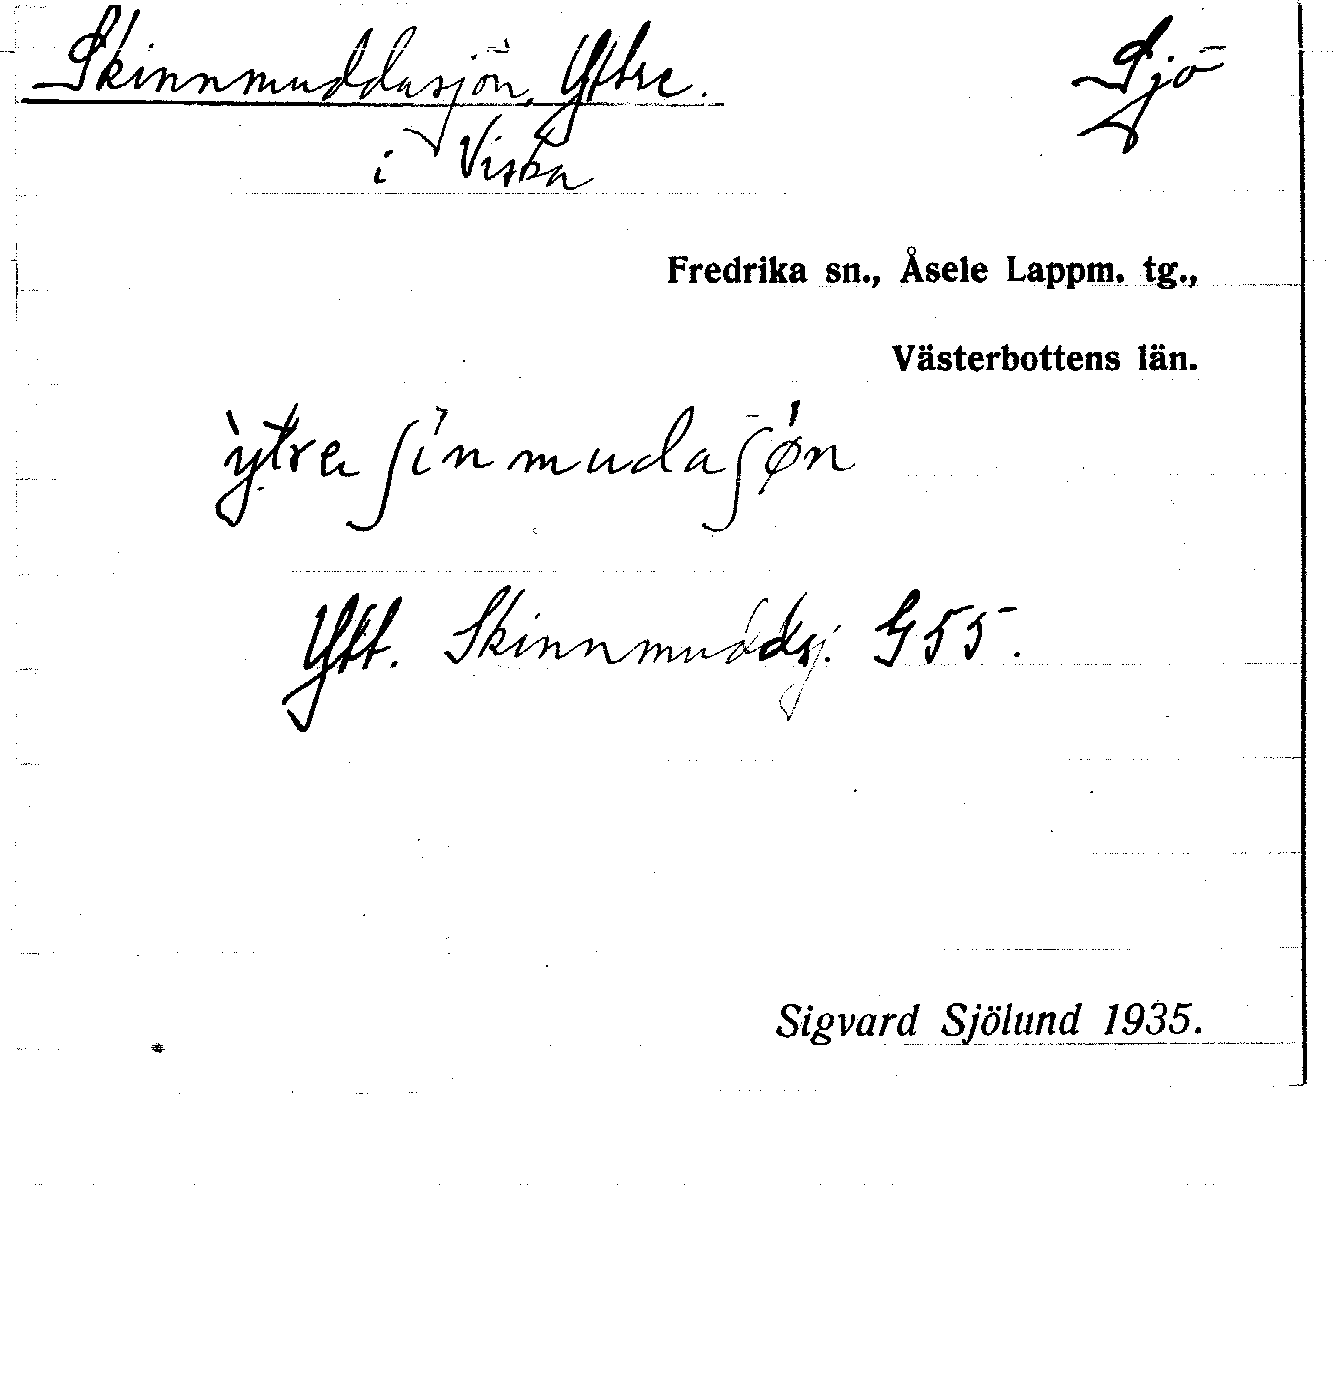 Skinnmuddasjön, Yttre. Sjö
i Viska
Fredrika sn., Åsele Lappm. tg.,
Västerbottens län.
ỳtrₑ ʃìnmudaʃǿn
Ytt. Skinnmuddsj. G55.
Sigvard Sjölund 1935.